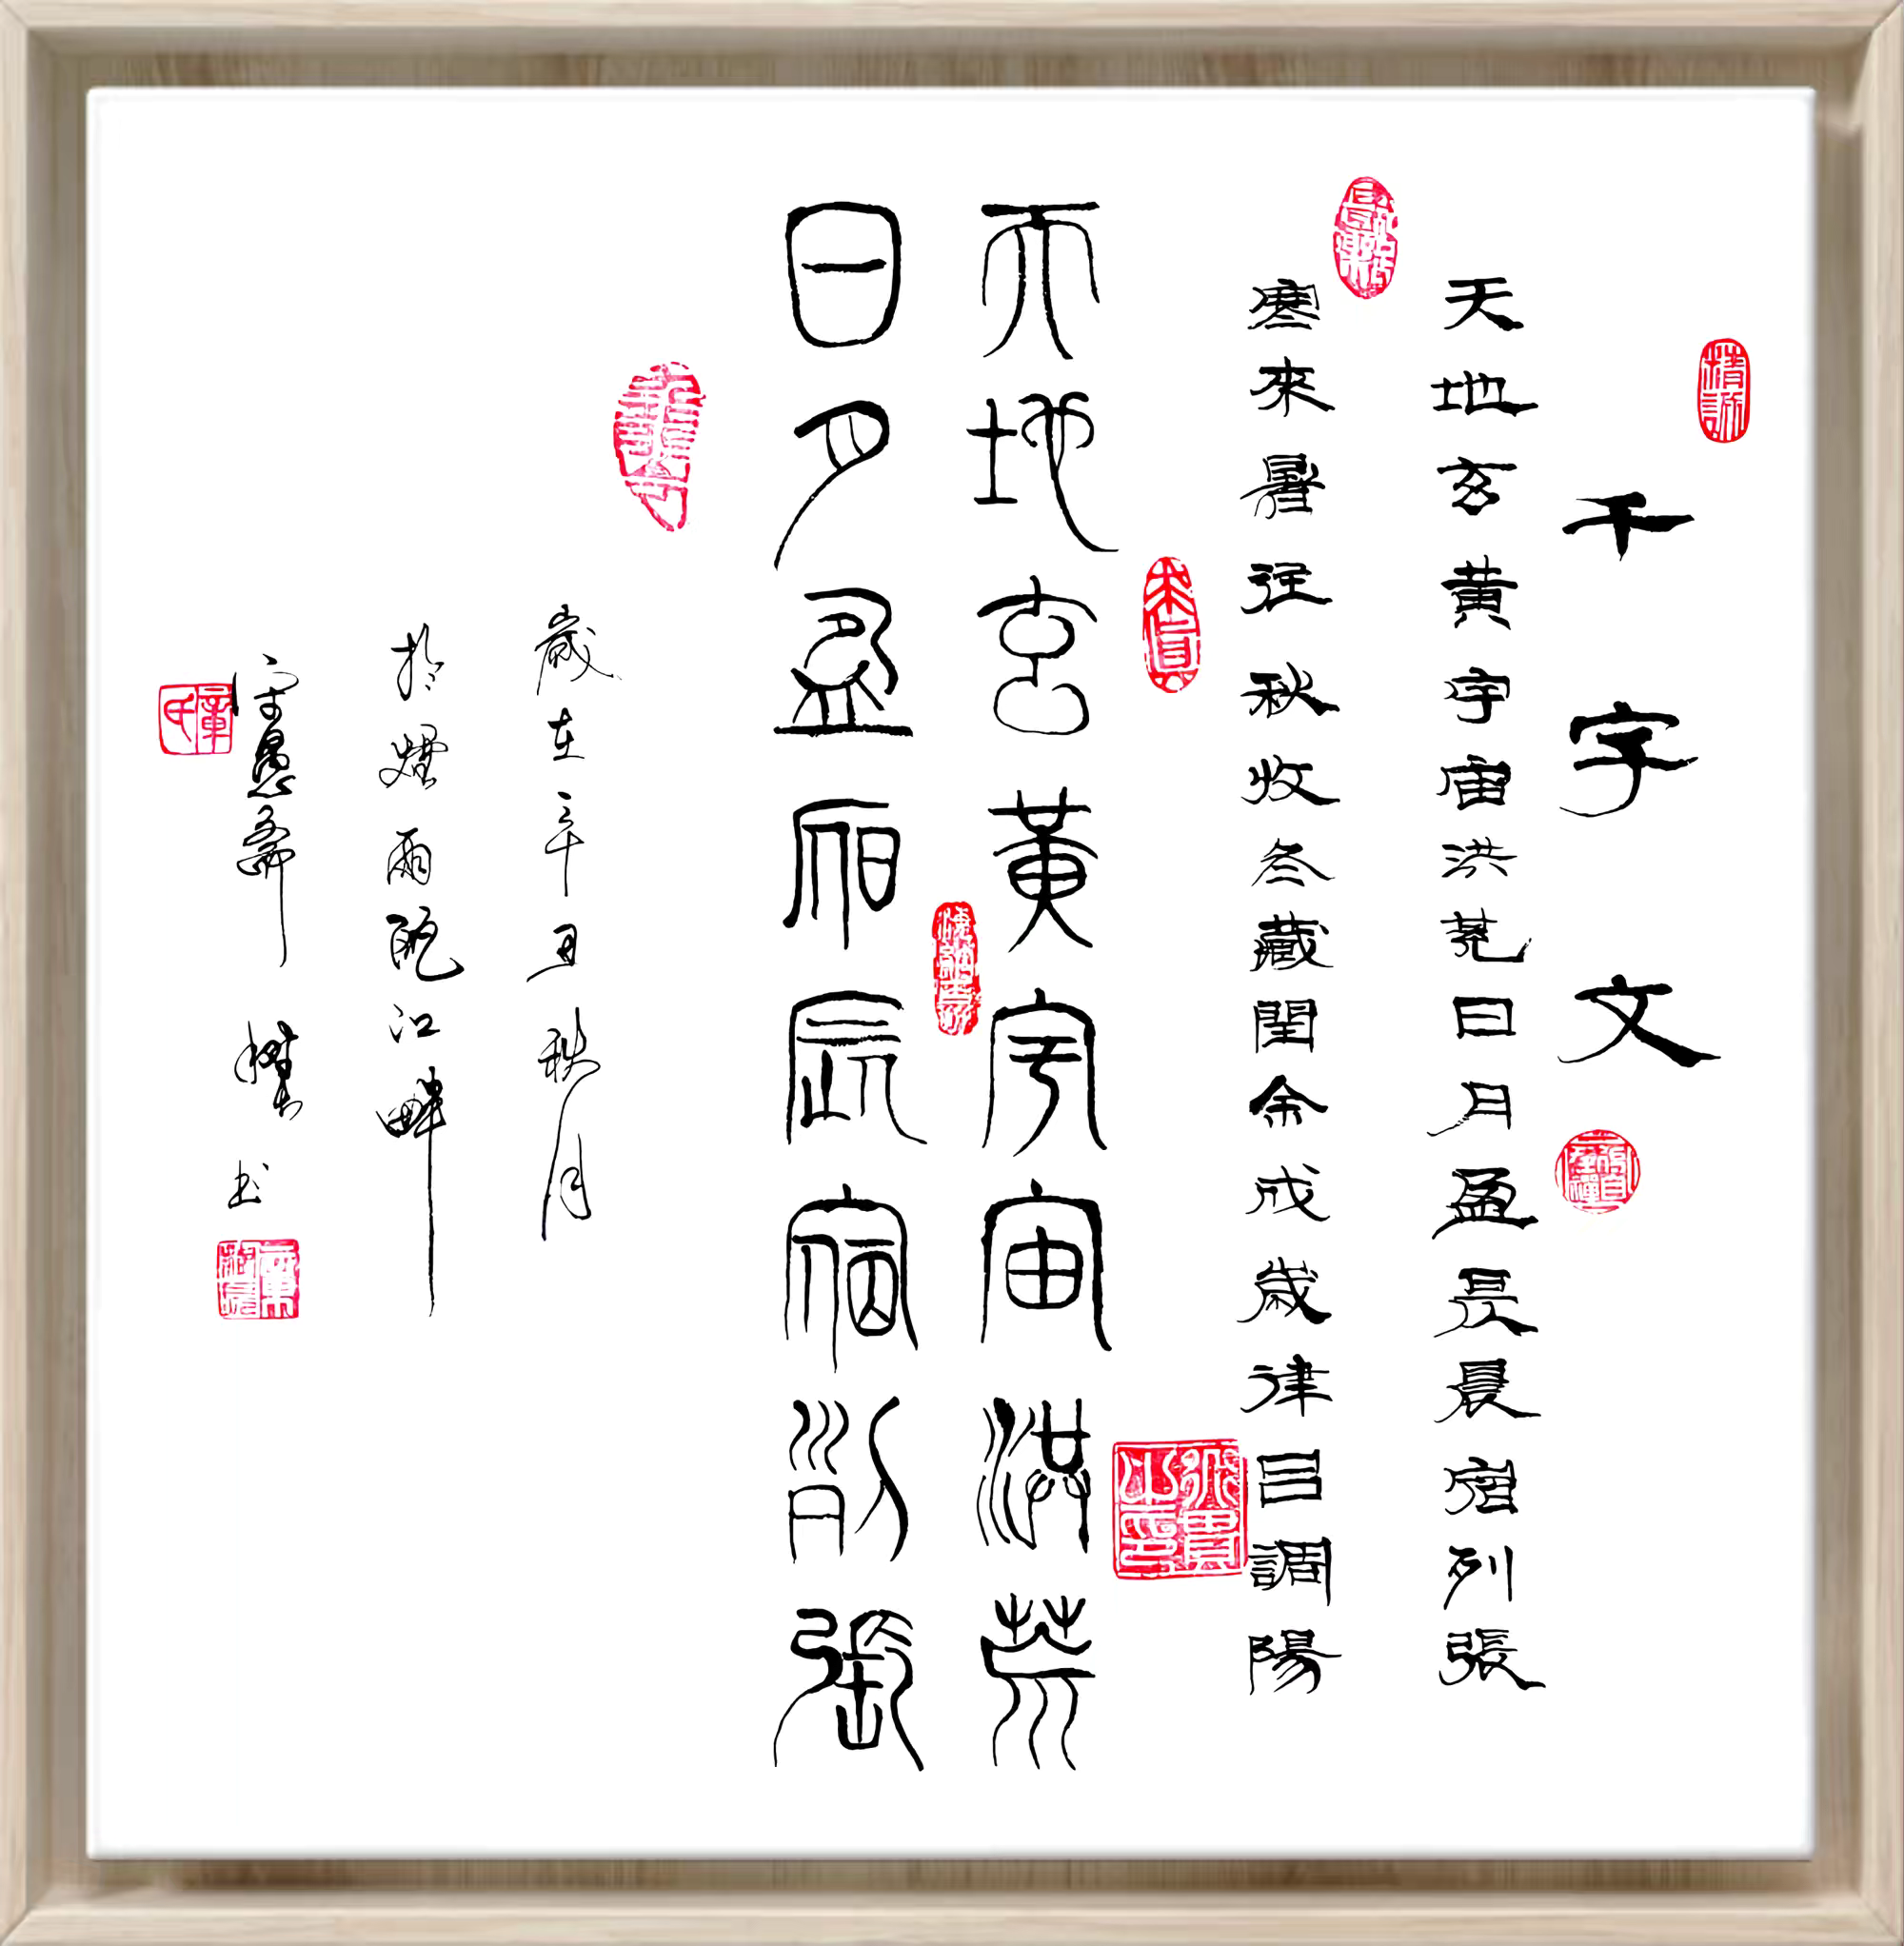 千字文
天地玄黄宇宙洪荒日月盈昃晨宿列張
寒來暑往秋收冬藏閏余成歲律吕調陽
天地玄黄宇宙洪荒
日月盈昃辰宿列張
歲在辛丑秋月
於煙雨甌江畔
守愚齋 书
童氏